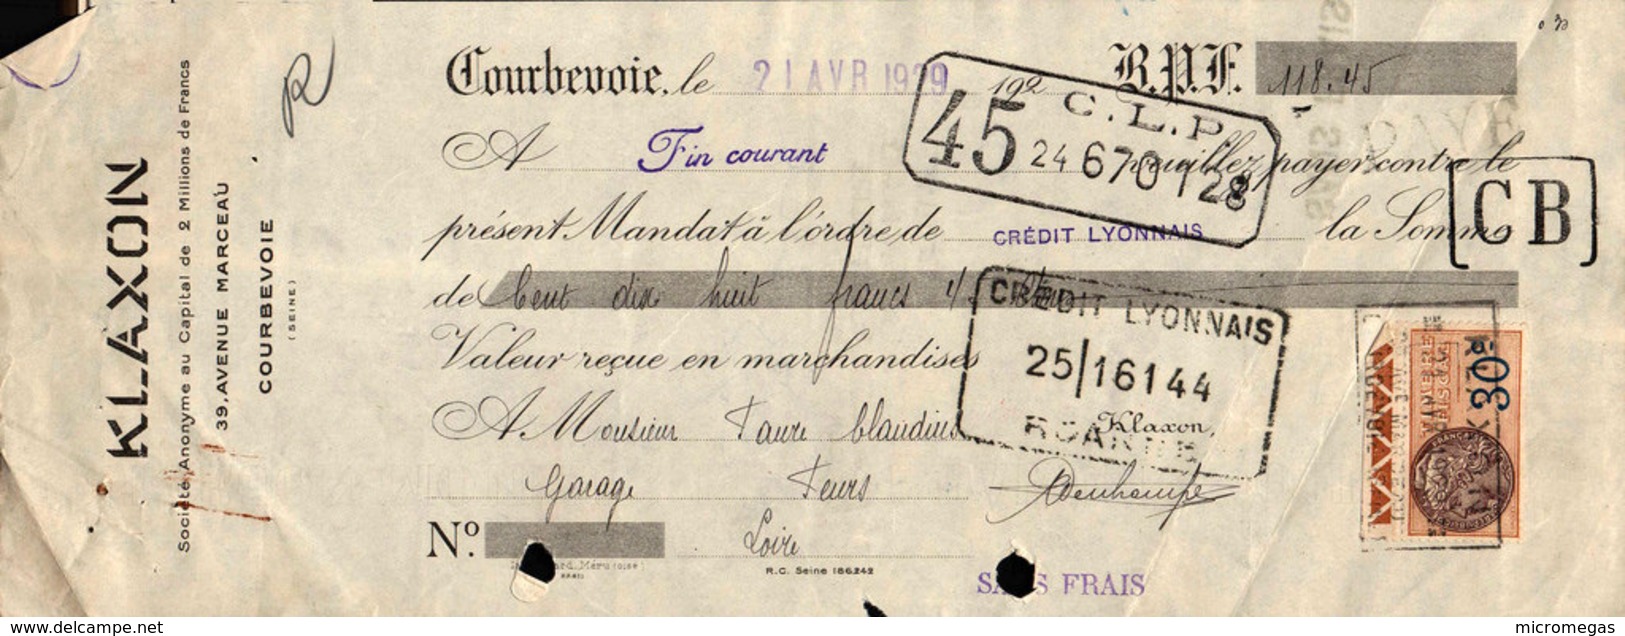 KLAXON
Société Anonyme au Capital de 2 Millions de Francs
39, AVENUE MARCEAU
COURBEVOIE
(SEINE)
R
Courbevoie, le 21 AVR 1929 192
B.P.F. 118.45
C.L.P.
45 24 670128
A Fin courant veuillez payer contre le
présent Mandat à l'ordre de CRÉDIT LYONNAIS la Somme
CB
de Cent dix huit francs 45
Valeur reçue en marchandises
CRÉDIT LYONNAIS
25/16144
ROANNE
A Monsieur Faure Claudius
Klaxon,
Garage Feurs
Nº
Loire
R.C. Seine 186242
Méru (OISE)
SANS FRAIS
30c
www.delcampe.net
micromegas